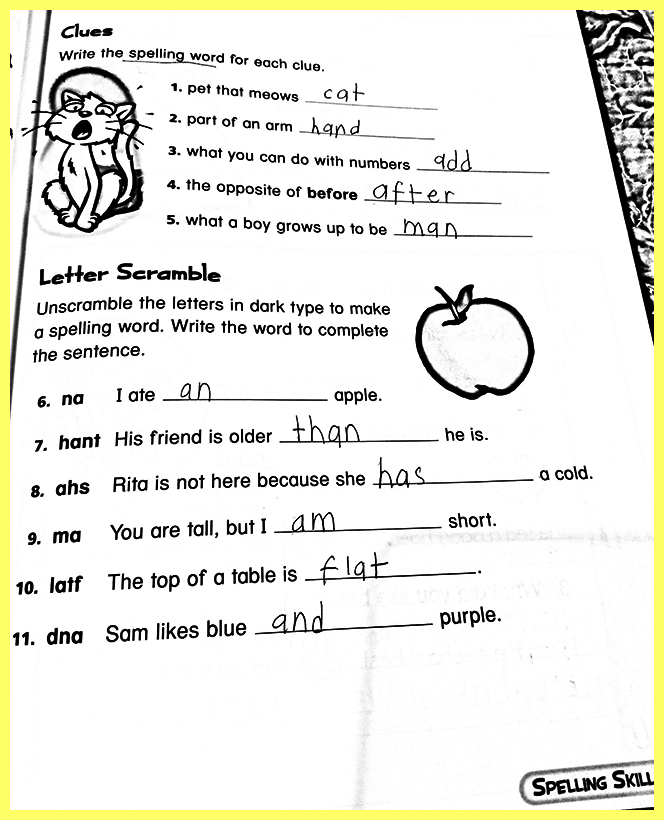 Clues
Write the spelling word for each clue.
1. pet that meows cat
2. part of an arm hand
3. what you can do with numbers add
4. the opposite of before after
5. what a boy grows up to be man
Letter Scramble
Unscramble the letters in dark type to make
a spelling word. Write the word to complete
the sentence.
6. na I ate an apple.
7. hant His friend is older than he is.
8. ahs Rita is not here because she has a cold.
9. ma You are tall, but I am short.
10. latf The top of a table is flat.
11. dna Sam likes blue and purple.
SPELLING SKILL